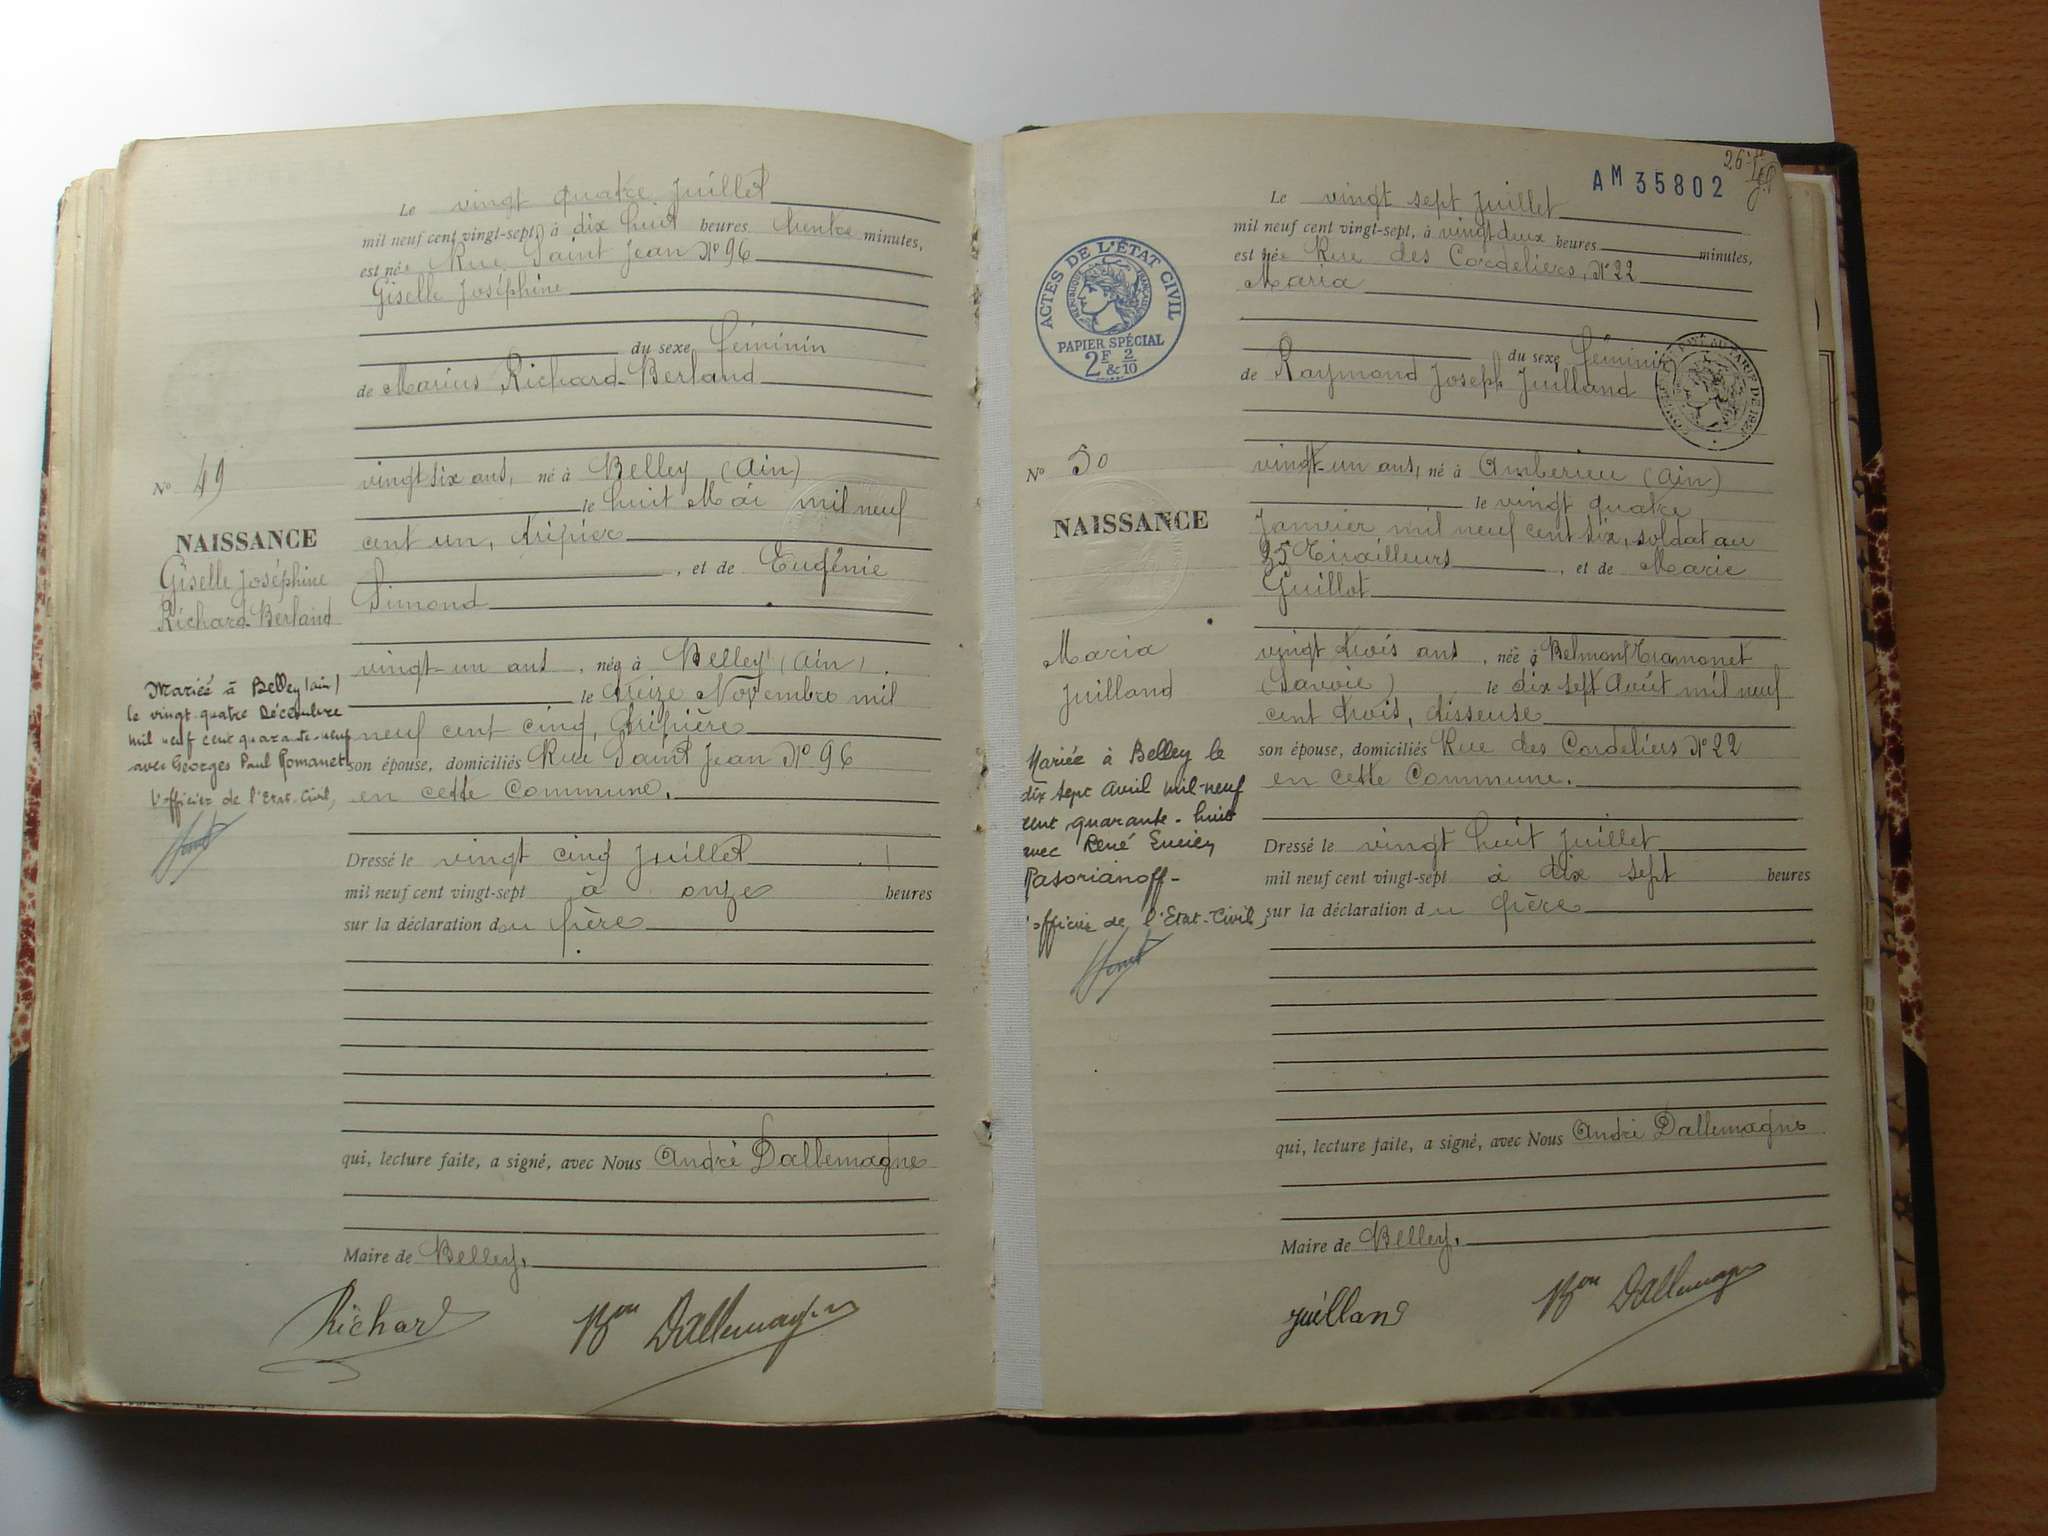 Le vingt quatre Juillet
mil neuf cent vingt-sept, à dix huit heures trente minutes,
est née Rue Saint Jean N° 96
Giselle Joséphine
du sexe féminin
de Marius Richard-Berland
N° 49
vingt six ans, né à Belley (Ain)
le huit Mai mil neuf
cent un, tripier
NAISSANCE
Giselle Joséphine
Richard-Berland
, et de Eugénie
Simond
vingt-un ans, née à Belley (Ain).
le treize Novembre mil
neuf cent cinq, tripière
son épouse, domiciliés Rue Saint Jean N° 96
en cette Commune.
Mariée à Belley (ain)
le vingt-quatre Décembre
mil neuf cent quarante-neuf
avec Georges Paul Romanet
l'officier de l'Etat-Civil,
Dressé le vingt cinq Juillet
mil neuf cent vingt-sept à onze heures
sur la déclaration du père
qui, lecture faite, a signé, avec Nous André Dallemagne
Maire de Belley.
Richard
Bon Dallemagne
AM 35802
Le vingt sept Juillet
mil neuf cent vingt-sept, à vingt deux heures minutes,
est née Rue des Cordeliers, N° 22
Maria
ACTES DE L'ÉTAT CIVIL
RÉPUBLIQUE FRANÇAISE
PAPIER SPÉCIAL
2F & 2/10
du sexe féminin
de Raymond Joseph Juilland
N° 50
vingt-un ans, né à Amberieu (Ain)
le vingt quatre
Janvier mil neuf cent six, soldat au
Tirailleurs, et de Marie
Guillot
NAISSANCE
Maria
Juilland
vingt trois ans, née à Belmont Tramonet
(Savoie) le dix sept Août mil neuf
cent trois, tisseuse
son épouse, domiciliés Rue des Cordeliers N° 22
en cette Commune.
Mariée à Belley le
dix sept Avril mil-neuf
cent quarante-huit
avec René Lucien
Pasorianoff-
l'officier de l'Etat-Civil,
Dressé le vingt huit Juillet
mil neuf cent vingt-sept à dix sept heures
sur la déclaration du père
qui, lecture faite, a signé, avec Nous André Dallemagne
Maire de Belley.
Juilland
Bon Dallemagne